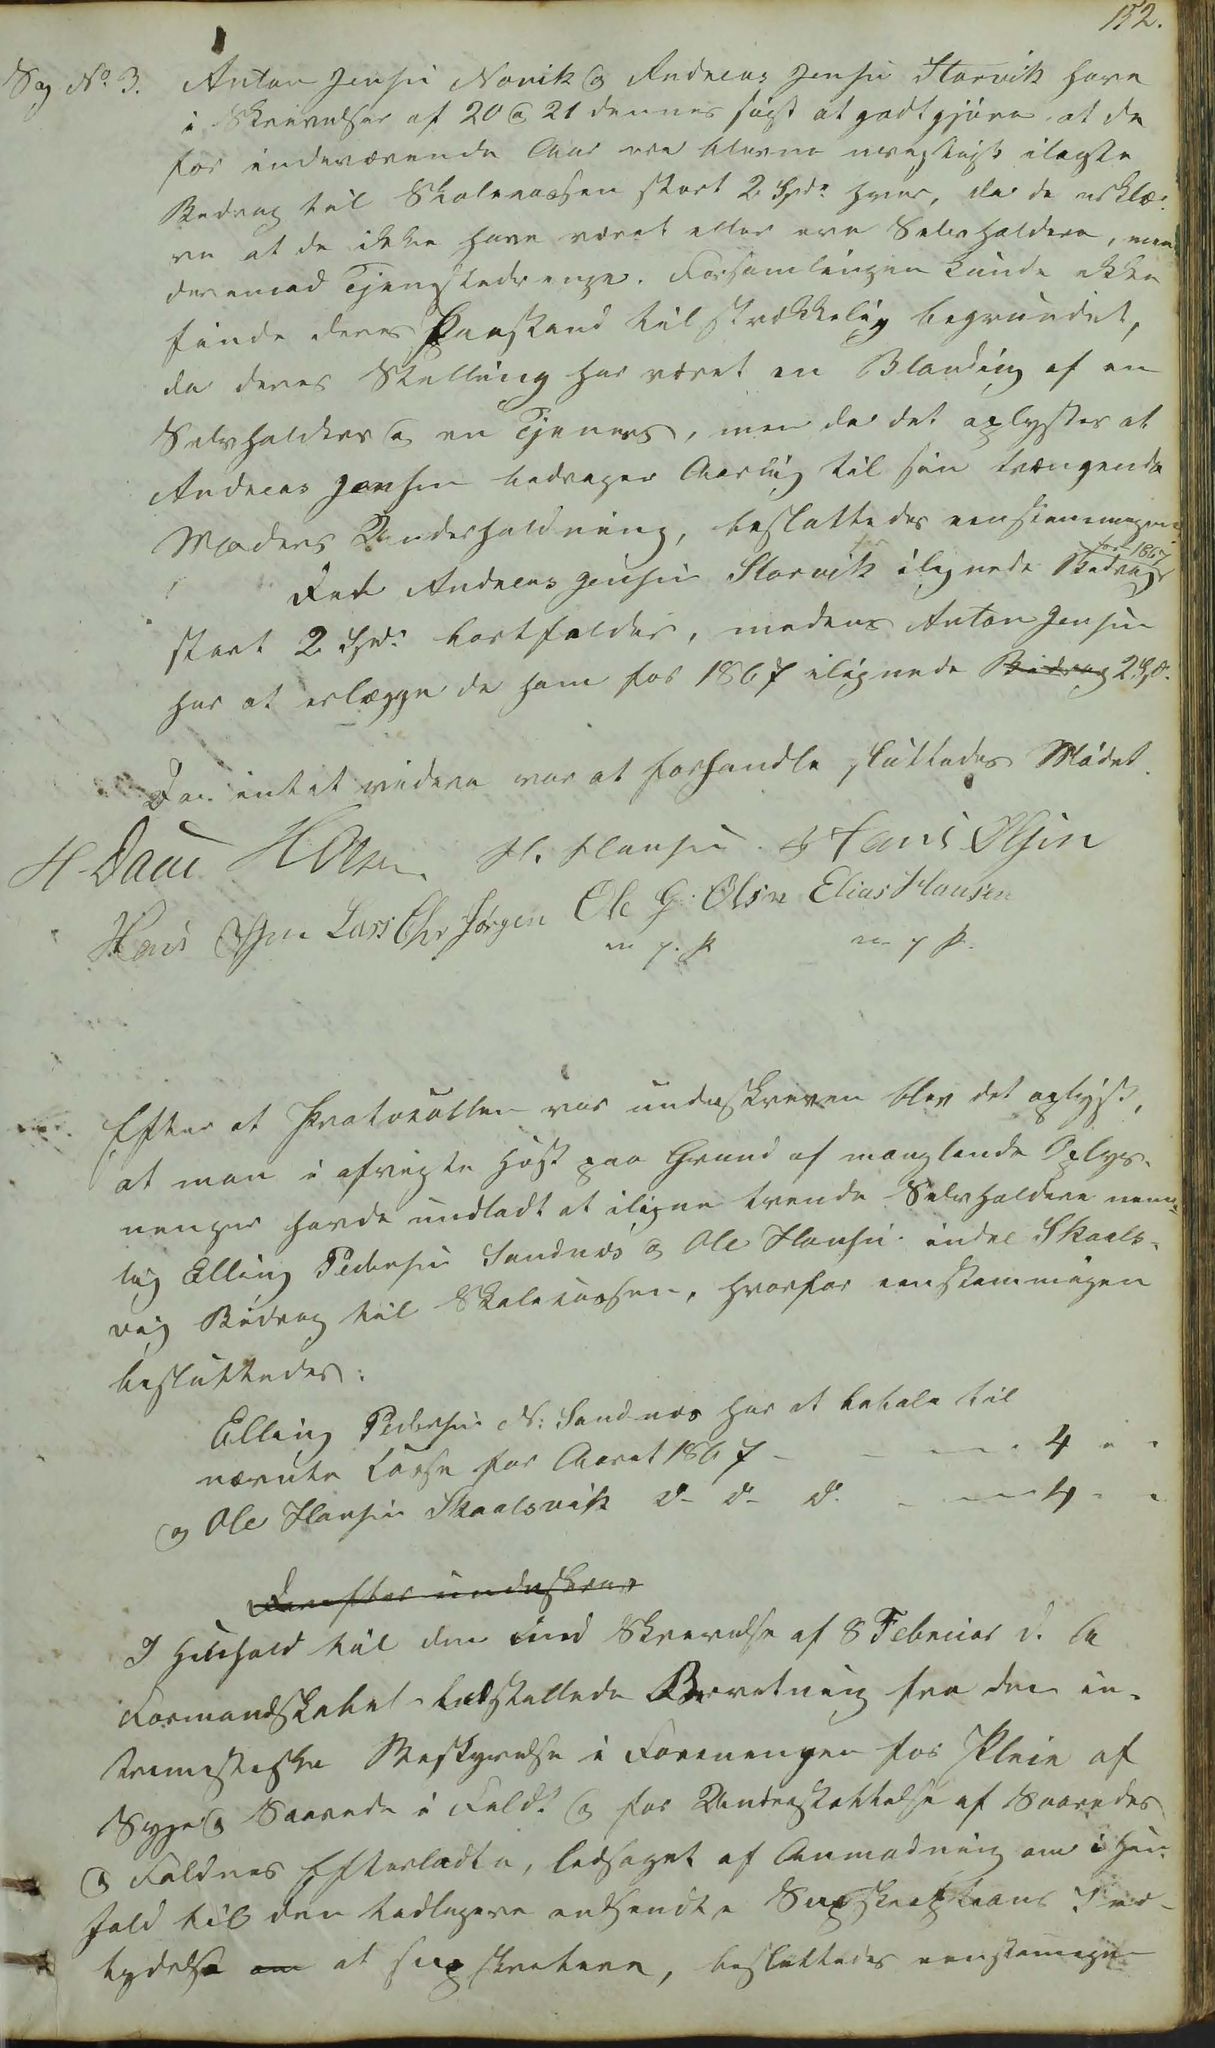 152.
Sag No 3. Anton Jensen Novik og Andreas Jensen Storvik have
i Skrivelser af 20 og 21 dennes søgt at godtgjøre at de
for indeværende Aar ere blevne urigtigt ilagte
Bidrag til Skolecassen stort 2 Spd. hver, da de erklæ-
re at de ikke have været eller ere Selvholdere, men
derimod Tjenestedrenge. Forsamlingen kunde ikke
finde deres Paastand tilstrækkelig begrundet,
da deres Stelling har været en Blanding af en
Selvholders og en Tjeners, men da det oplystes at
Andreas Jensen bidrager Aarlig til sin trængende
Moders Underholdning, besluttedes eenstemmigen:
Det Andreas Jensen Storvik ilignede Bidrag for 1867
stort 2 Spd. bortfalder, medens Anton Jensen
har at erlægge de ham for 1867 ilignede Bidrag 2 Spd.
Da intet videre var at forhandle sluttedes Mødet.
H. Daae H Olsen H. Hansen Hans Olsen
Hans Lars Chr Jørgen Ole G. Olsen Elias Hansen
m. p. P. m. p. P.
Efter at Protokollen var underskreven blev det oplyst,
at man i afvigte Høst paa Grund af manglende Oplys-
ninger havde undladt at iligne tvende Selvholdere nem-
lig Elling Pedersen Sandnæs og Ole Hansen indre Skaals-
vig Bidrag til Skolecassen, hvorfor eenstemmigen
besluttedes:
Elling Pedersen N: Sandnæs har at betale til
nævnte Casse for Aaret 1867 - - - 4 " "
og Ole Hansen Skaalsvik do do do - - 4 " "
Derefter underskrev
I Henhold til den med Skrivelse af 8 Februar d. A
Formandskabet tilstillede Beretning fra den in-
terimistiske Bestyrelse i Foreningen for Pleie af
Syge og Saarede i Feldt og for Understøttelse af Saaredes
og Faldnes Efterladte, ledsaget af Anmodning om i Hen-
hold til den tidligere omsendte Supskriptions Ind-
bydelse om at supskribere, besluttedes eenstemmigen